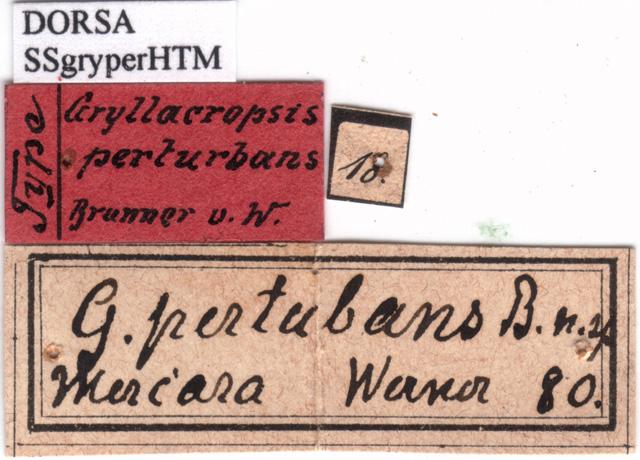 DORSA
SSgryperHTM
Type
Gryllacropsis
perturbans
Brunner v. W.
18.
G. pertubans B. n. sp
Mercara Werner 80.